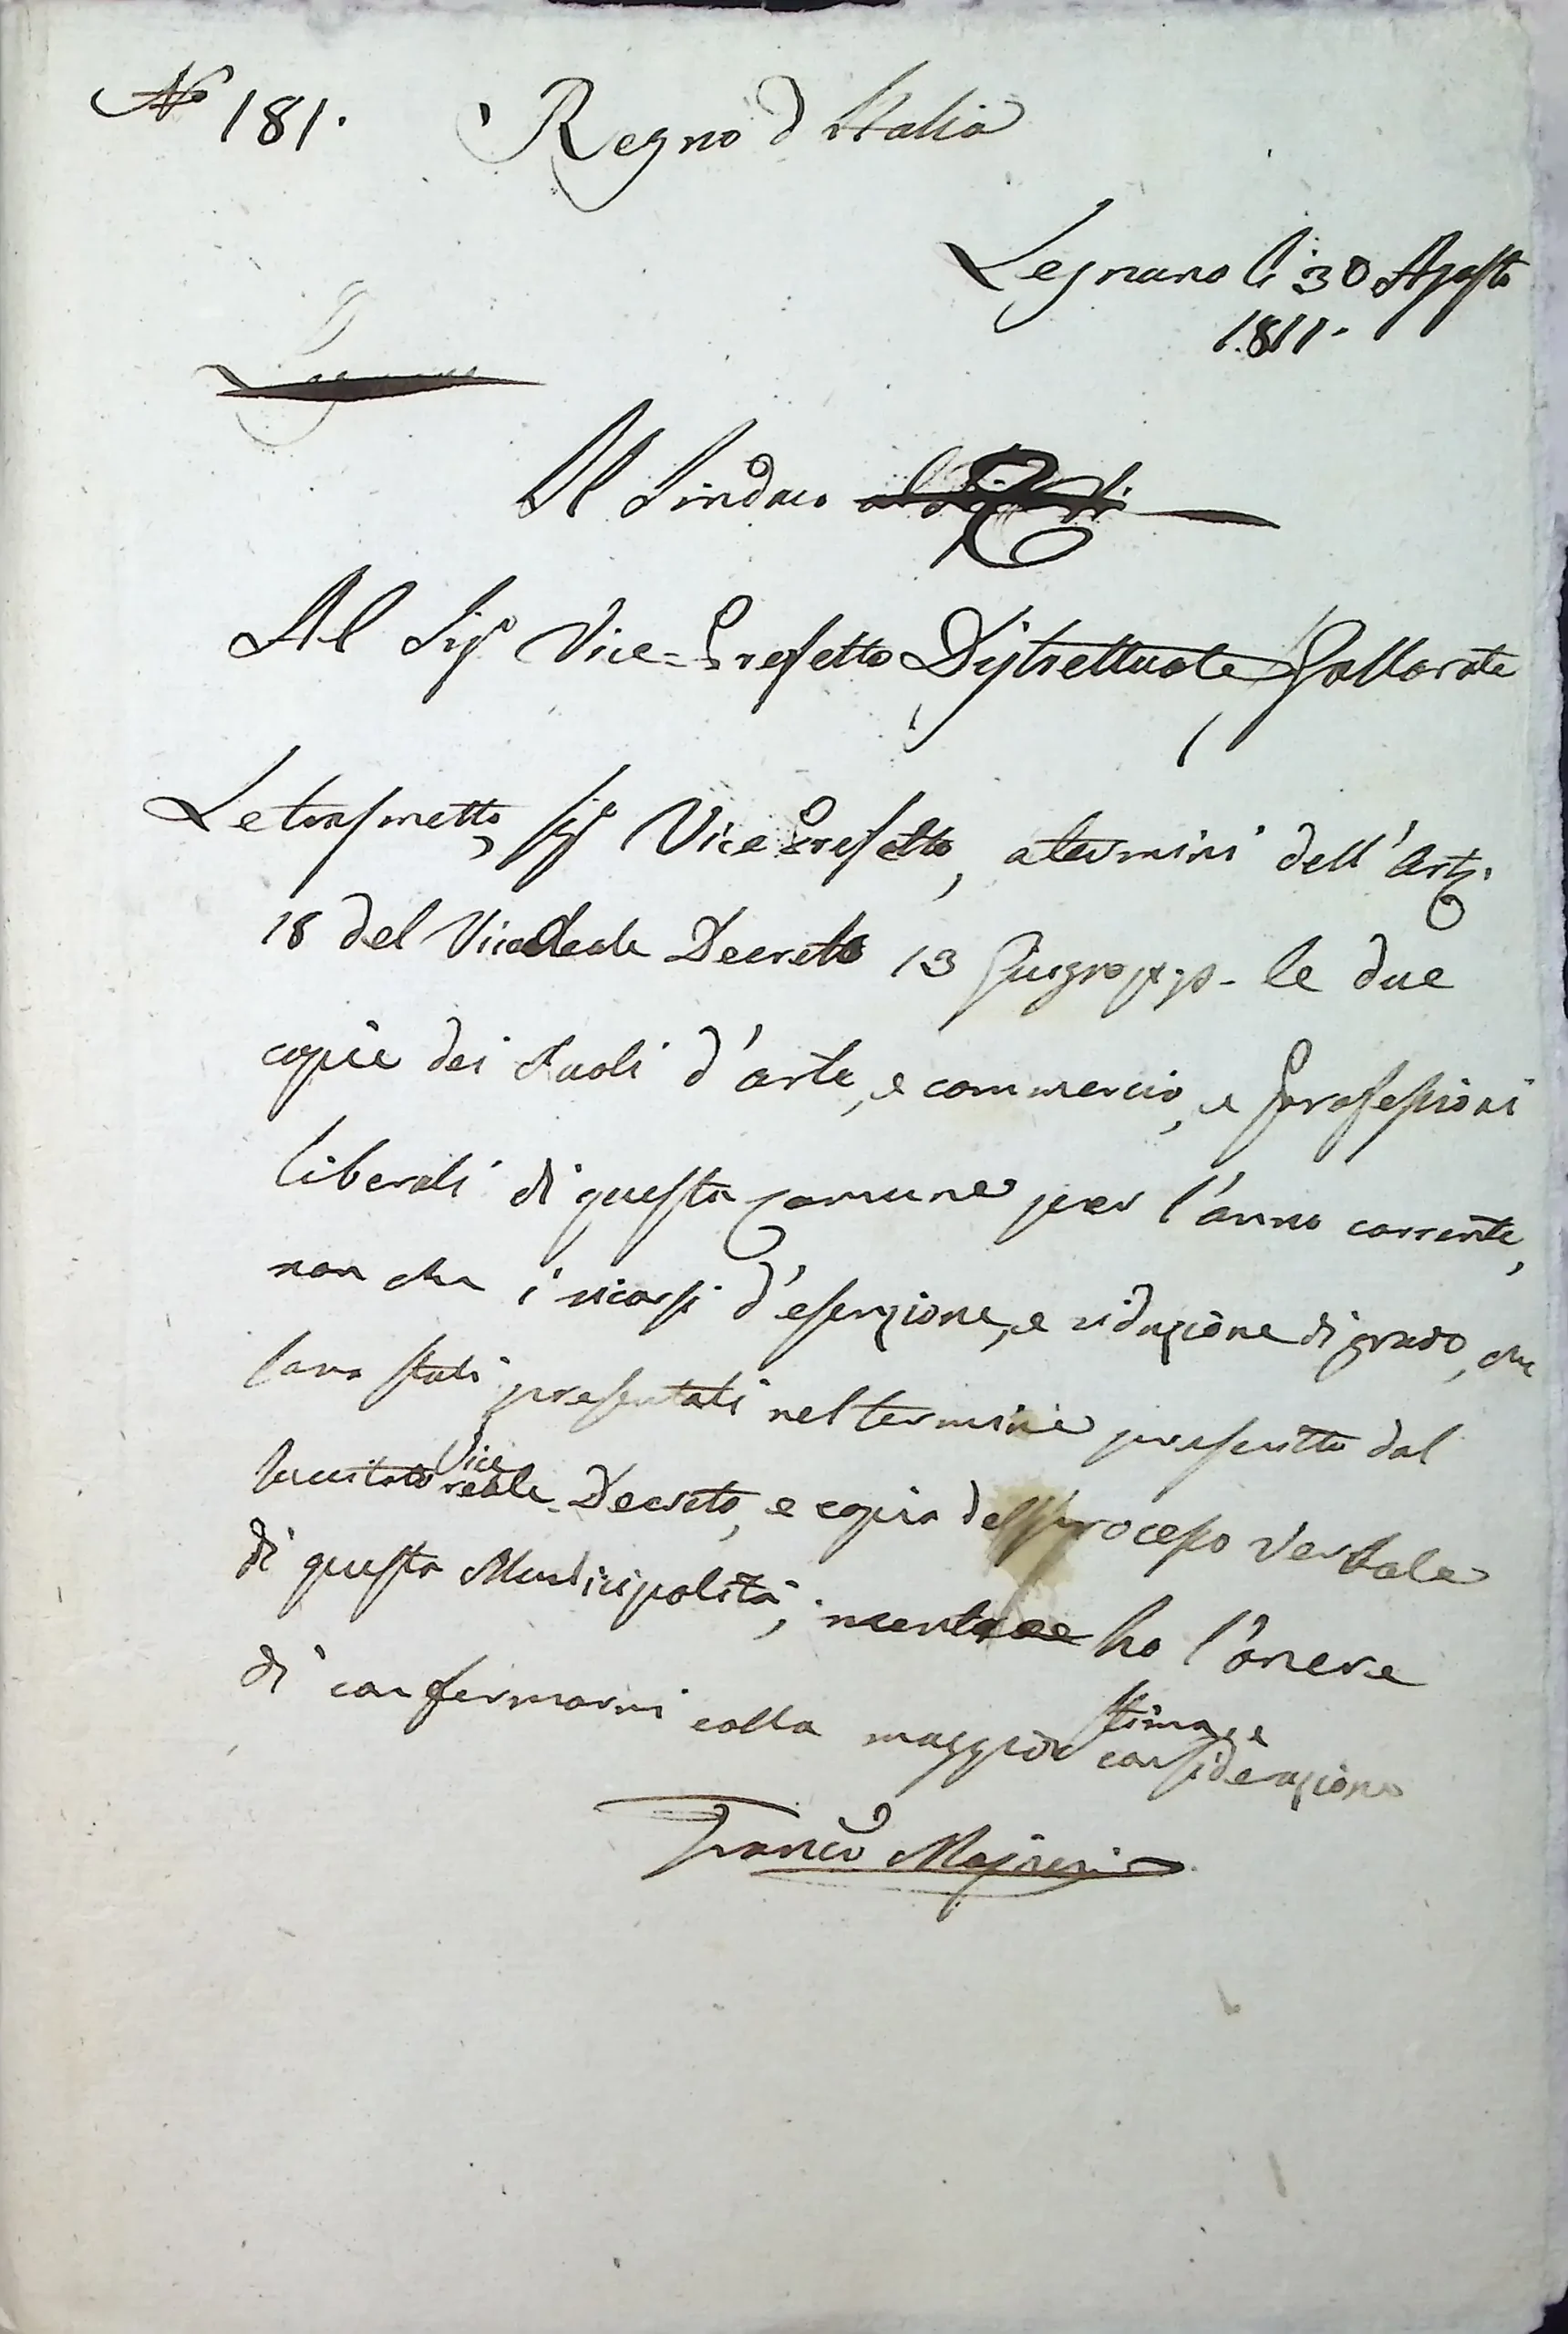 N.º 181. Regno d'Italia
Legnano li 30 Agosto
1811.
Il Sindaco
Al Sigr Vice=Prefetto Distrettuale Gallarate
Le trasmetto, Sigr Vice Prefetto, a termini dell'Art.
18 del Vice Reale Decreto 13 Giugno p.p. le due
copie dei Ruoli d'arte, e commercio, e professioni
liberali di questa comune per l'anno corrente,
non che i ricorsi d'esenzione, e riduzione di grado, che
sono stati presentati nel termine prescritto dal
succitato Vice reale Decreto, e copia del processo verbale
di questa Municipalità, mentre ho l'onore
di confermarmi colla maggior stima, e
considerazione
Franco